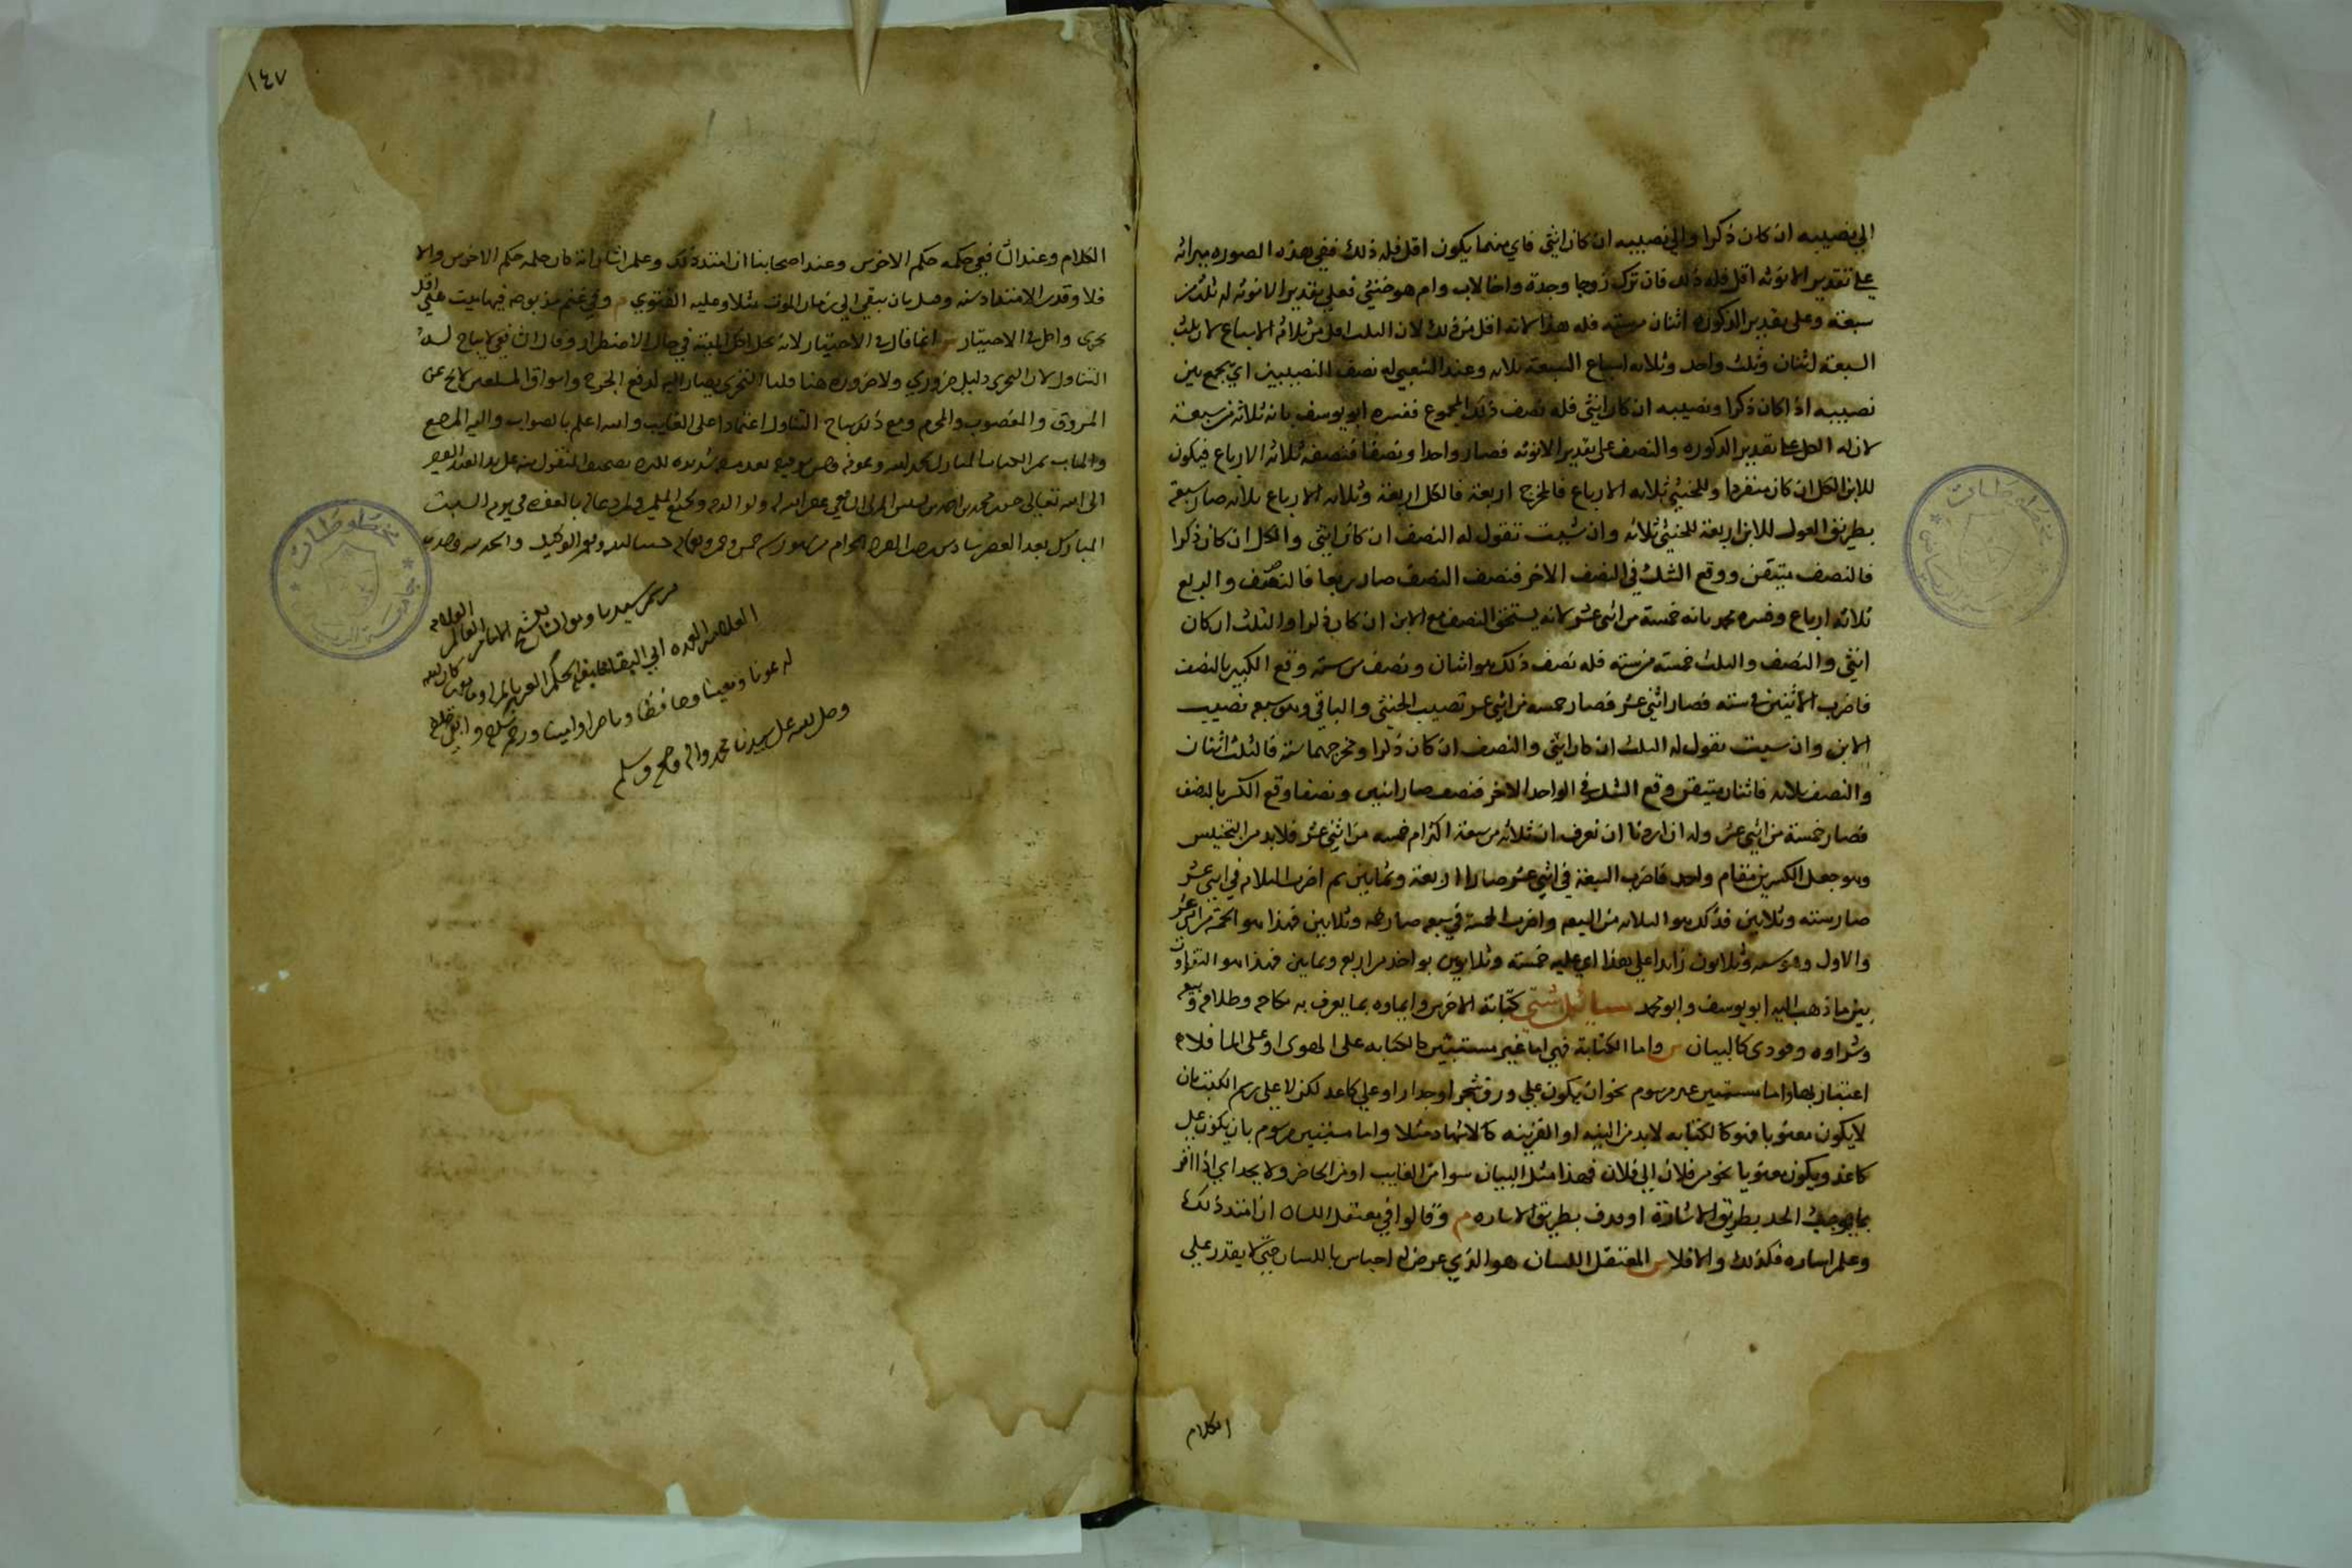 الي نصيبه ان كان ذكرا والي نصيبه ان كان انثي فاي منهما يكون اقل فله ذلك ففي هذه الصوره ميراثه
علي تقدير الانوثه اقل فله ذلك فان ترك زوجا وجدة واخا لاب وام هو خنثي فعلي تقدير الانوثه له ثلثه من
سبعة وعلي تقدير الذكوره اثنان من سته فله هذا لانه اقل من ذلك لان الثلث اقل من ثلاثة الاسباع لان ثلث
السبعة اثنان وثلث واحد وثلاثه اسباع السبعة ثلاثه وعند الشعبي له نصف النصيبين اي يجمع بين
نصيبه اذا كان ذكرا ونصيبه ان كان انثي فله نصف ذلك المجموع ففسره ابو يوسف بانه ثلاثة من سبعة
لان له الكل علي تقدير الذكوره والنصف علي تقدير الانوثه فصار واحدا ونصفا فنصفه ثلاثه الارباع فيكون
للابن الكل ان كان منفردا وللخنثي ثلاثه الارباع فالمخرج اربعة فالكل اربعة وثلاثه الارباع ثلاثه صار سبعة
بطريق العول للابن اربعة للخنثي ثلاثه وان شيت تقول له النصف ان كان انثي والكل ان كان ذكرا
فالنصف متيقن ووقع الشك في النصف الاخر فنصف النصف صار ربعا فالنصف والربع
ثلاثه ارباع وفسره محمد بانه خمسة من اثني عشر لانه يستحق النصف مع الابن ان كان ذكرا والثلث ان كان
انثي والنصف والثلث خمسه من سته فله نصف ذلك هو اثنان ونصف من سته وقع الكسر بالنصف
فاضرب الاثنين في سته فصار اثني عشر فصار خمسه من اثني عشر نصيب الخنثي والباقي وهو سبعه نصيب
الابن وان شيت تقول له الثلث ان كان انثي والنصف ان كان ذكرا ومخرجهما سته فالثلث اثنان
والنصف ثلاثه فاثنان متيقن وقع الشك في الواحد الاخر فنصف صار اثنين ونصفا وقع الكسر بالنصف
فصار خمسة من اثني عشر وله ان اردنا ان نعرف ان ثلاثه من سبعة اكثر ام خمسه من اثني عشر فلا بد من التجنيس
وهو جعل الكسرين من مقام واحد فاضرب السبعة في اثني عشر صار اربعة وثمانين ثم اضرب الثلاثه في اثني عشر
صار سته وثلاثين فذلك هو الثلاثه من السبعه واضرب الخمسة في سبعه صار خمسه وثلاثين فهذا هو الخمسة من اثني عشر
والاول وهو سته وثلاثون زايد علي هذا اي عليه خمسة وثلاثين بواحد من اربع وثمانين فهذا هو التفاوت
بين ما ذهب اليه ابو يوسف وابو محمد مسائل شتي كتابة الاخرس وايماوه بما يعرف به نكاحه وطلاقه وبيعه
وشراوه وقوده كالبيان ش واما الكتابة فهي اما غير مستبين كالكتابه علي الهوي او علي الما فلا
اعتبار بها واما مستبين غير مرسوم نحو ان يكون علي ورق شجر او جدار او علي كاغد لكن لا علي رسم الكتب بان
لا يكون معنونا فهو كالكتابه لا بد من النيه او القرينه كالاشهاد مثلا واما مستبين مرسوم بان يكون علي
كاغد ويكون معنونا نحو من فلان الي فلان فهذا مثل البيان سوا من الغايب او من الحاضر ولا يحد اي اذا اقر
بما يوجب الحد بطريق الاشارة او قذف بطريق الاشاره م وقالوا في معتقل اللسان ان امتد ذلك
وعلم اشاره فكذلك والا فلا ش المعتقل اللسان هو الذي عرض له احتباس باللسان حتي لا يقدر علي
الكلام
١٤٧
الكلام وعند الشافعي حكمه حكم الاخرس وعند اصحابنا ان امتد ذلك وعلم اشارته كان حكمه حكم الاخرس والا
فلا وقدر الامتداد سنه وقيل بان يبقي الي زمان الموت مثلا وعليه الفتوي م وفي غنم مذبوحه فيها ميت هي اقل
تحري واكل في الاختيار ش انما قال في الاختيار لانه يحل اكل الميتة في حال الاضطرار وقال الشافعي لا يباح له
التناول لان التحري دليل ضروري ولا ضروره هنا قلنا التحري يصار اليه لدفع الحرج واسواق المسلمين لا تخ عن
المسروق والمغصوب والمحرم ومع ذلك يباح التناول اعتمادا علي الغالب والله اعلم بالصواب واليه المرجع
والماب تم الكتاب المبارك بحمد الله وعونه وحسن توفيقه
الي الله تعالي محمد بن احمد الشافعي غفر الله له ولوالديه ولجميع المسلمين في يوم السبت
المبارك بعد العصر سادس الحرام حسبنا الله ونعم الوكيل والحمد لله وحده
سيدنا ومولانا الشيخ الامام العالم العلامه
العمده ابي البقا خليفة الحكم العزيز كان الله
له عونا ومعينا وحافظا وناصرا وامينا ورحم سلفه وابقي خلفه
وصلي الله علي سيدنا محمد واله وصحبه وسلم
مخطوطات
جامعة الرياض
مخطوطات
جامعة الرياض